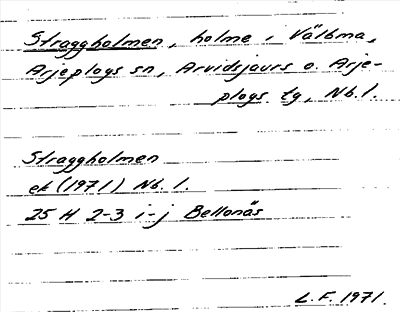 Straggholmen, holme i Välbma,
Arjeplogs sn, Arvidsjaurs o. Arje-
plogs tg, Nb. l.
Straggholmen
ek (1971) Nb. l.
25 H 2-3 i-j Bellonäs
L.F. 1971.